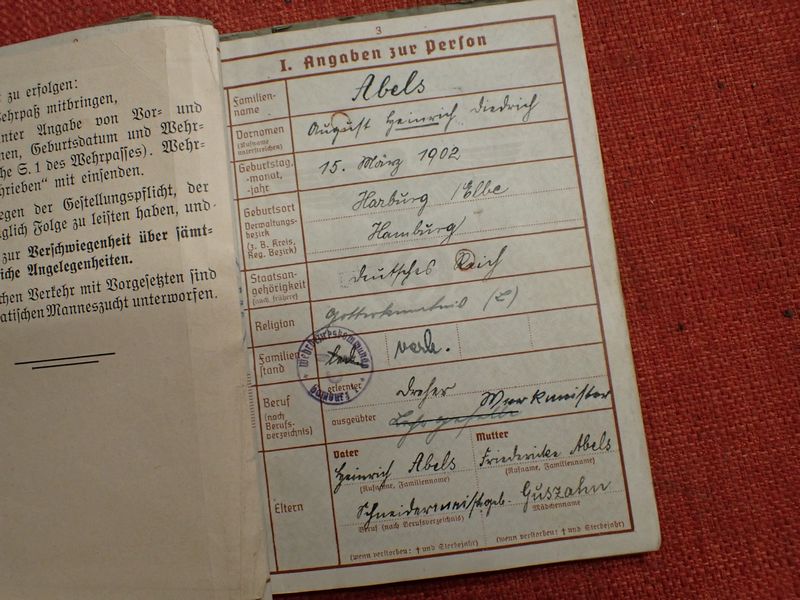 zu erfolgen:
ehrpaß mitbringen,
nter Angabe von Vor- und
nen, Geburtsdatum und Wehr-
he S. 1 des Wehrpasses). Wehr-
hrieben" mit einsenden.
egen der Gestellungspflicht, der
glich Folge zu leisten haben, und
zur Verschwiegenheit über sämt-
liche Angelegenheiten.
chen Verkehr mit Vorgesetzten sind
atischen Manneszucht unterworfen.
3
I. Angaben zur Person
Familien-
name
Abels
Vornamen
(Rufname
unterstreichen)
August Heinrich Diedrich
Geburtstag,
-monat,
-jahr
15. März 1902
Geburtsort
Verwaltungs-
bezirk
(z. B. Kreis,
Reg. Bezirk)
Harburg /Elbe
Hamburg
Staatsan-
gehörigkeit
(auch frühere)
deutsches Reich
Religion
(L)
Familien
stand
Wehrbezirkskommando
verh.
Beruf
(nach
Berufs-
verzeichnis)
erlernter
Dreher
ausgeübter
Werkmeister
Eltern
Vater
Heinrich Abels
(Rufname, Familienname)
Schneidermeister
Beruf (nach Berufsverzeichnis)
(wenn verstorben: † und Sterbejahr)
Mutter
Friedericke Abels
(Rufname, Familienname)
geb. Guszahn
Mädchenname
(wenn verstorben: † und Sterbejahr)